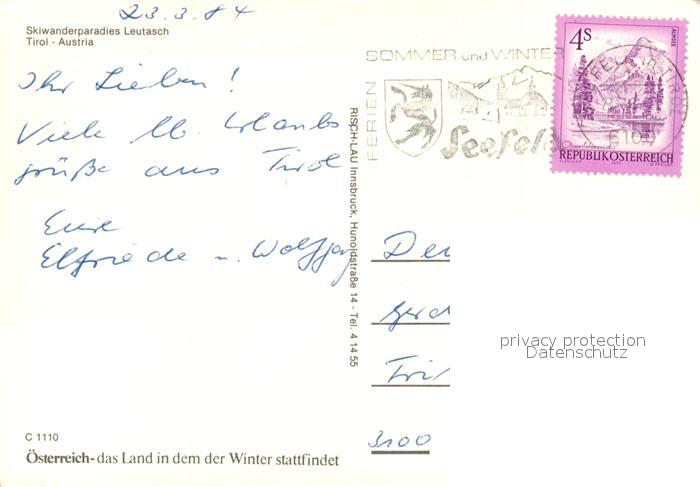 23.3.84
Skiwanderparadies Leutasch
Tirol - Austria
Ihr Lieben!
Viele lb. Urlaubs
grüße aus Tirol
Eure
Elfriede u. Wolfgang
C 1110
Österreich-das Land in dem der Winter stattfindet
RISCH-LAU Innsbruck, Hunoldstraße 14 - Tel. 4 14 55
SOMMER und WINTER
FERIEN
Seefeld
4S
ALMSEE
REPUBLIK ÖSTERREICH
6100
privacy protection
Datenschutz
3100